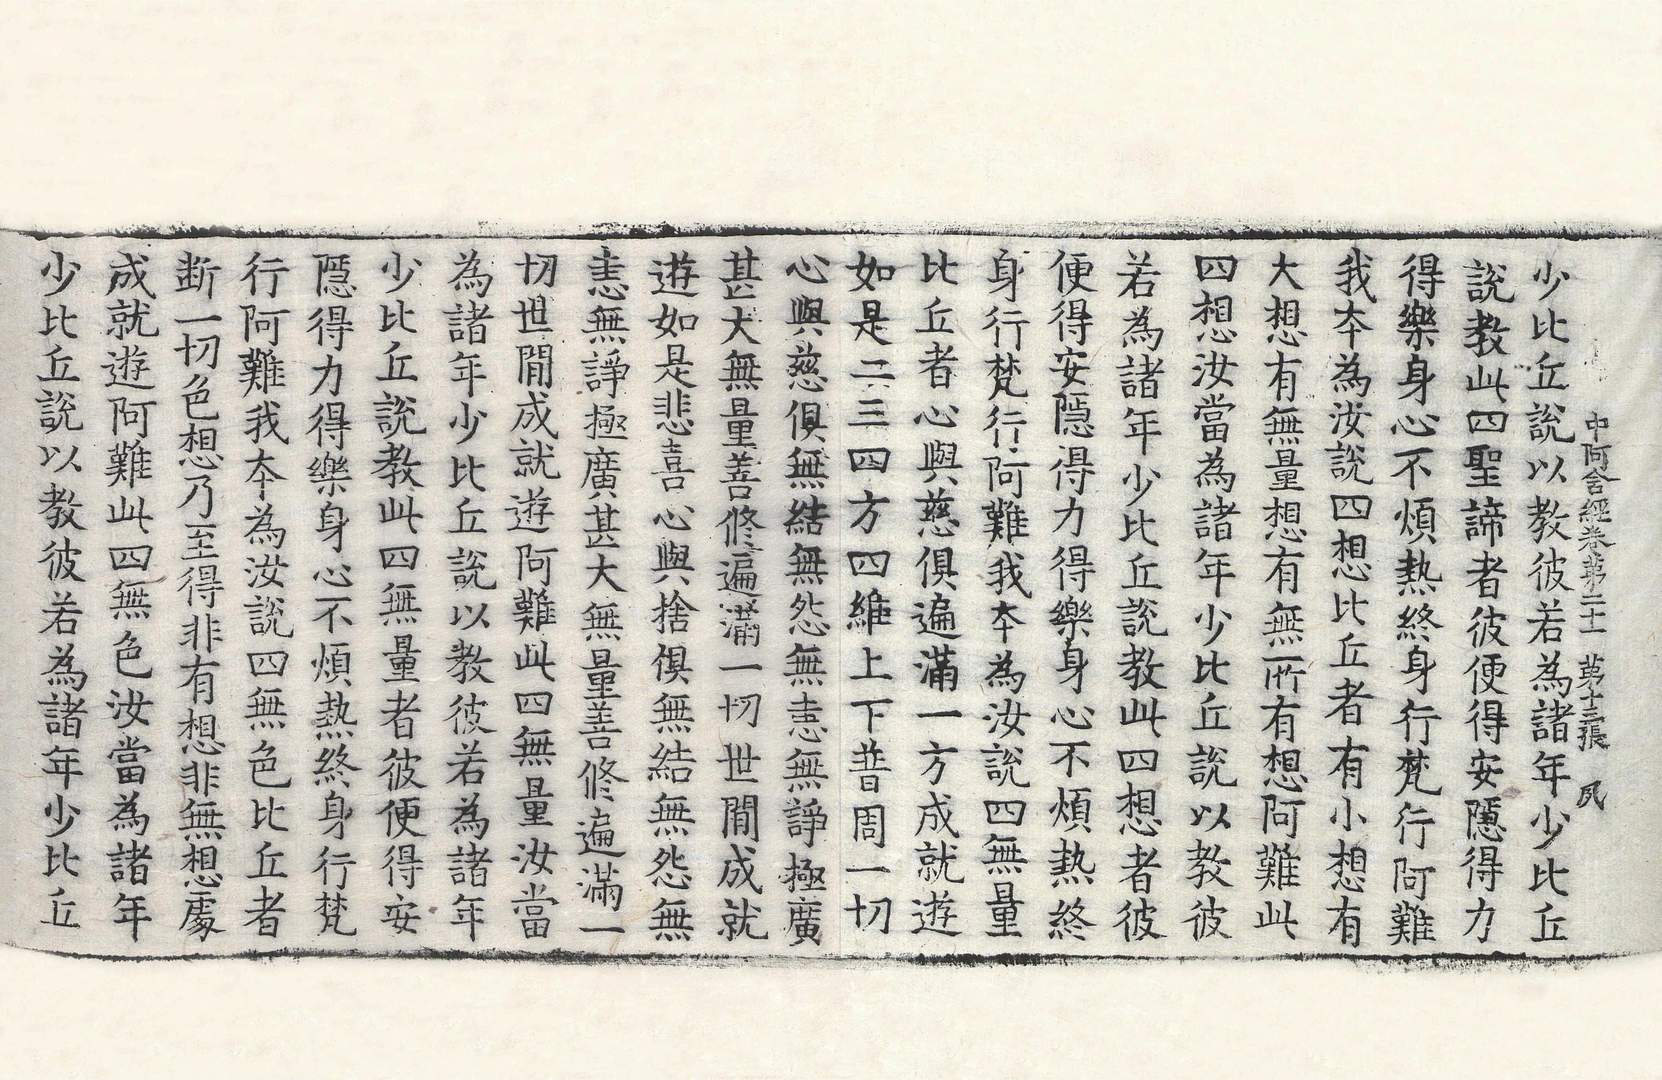 中阿含經卷第二十一 第十三張 夙
少比丘說以教彼若為諸年少比丘
說教此四聖諦者彼便得安隱得力
得樂身心不煩熱終身行梵行阿難
我本為汝說四想比丘者有小想有
大想有無量想有無所有想阿難此
四想汝當為諸年少比丘說以教彼
若為諸年少比丘說教此四想者彼
便得安隱得力得樂身心不煩熱終
身行梵行阿難我本為汝說四無量
比丘者心與慈俱遍滿一方成就遊
如是二三四方四維上下普周一切
心與慈俱無結無怨無恚無諍極廣
甚大無量善修遍滿一切世間成就
遊如是悲喜心與捨俱無結無怨無
恚無諍極廣甚大無量善修遍滿一
切世間成就遊阿難此四無量汝當
為諸年少比丘說以教彼若為諸年
少比丘說教此四無量者彼便得安
隱得力得樂身心不煩熱終身行梵
行阿難我本為汝說四無色比丘者
斷一切色想乃至得非有想非無想處
成就遊阿難此四無色汝當為諸年
少比丘說以教彼若為諸年少比丘